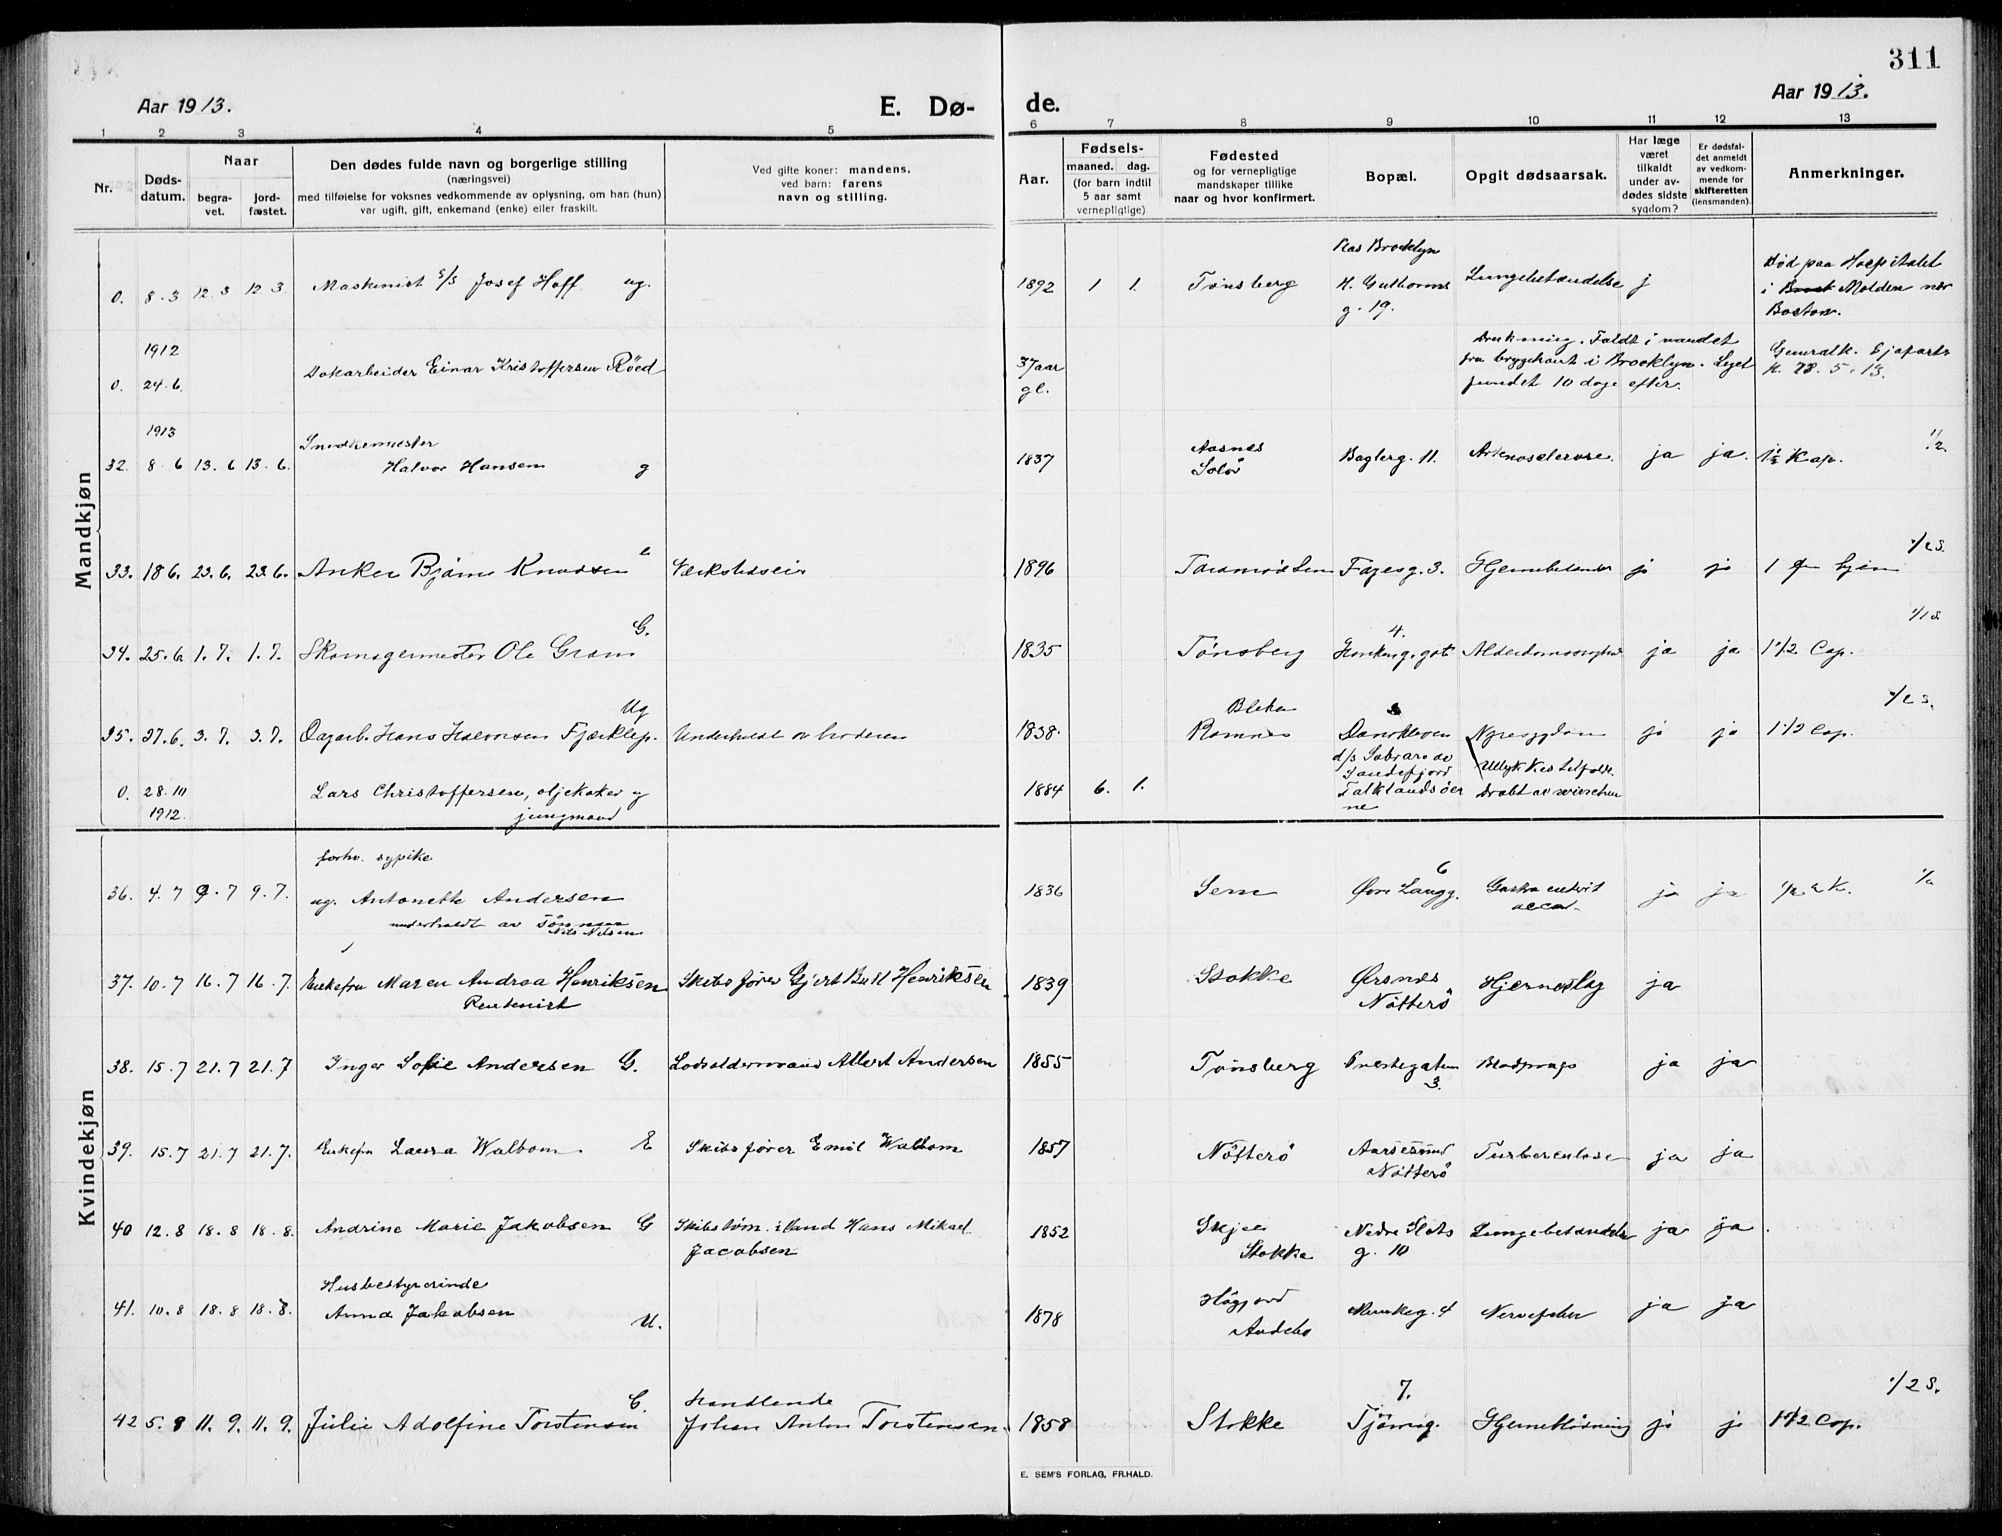 311
Aar 1913.
E. Dø-
de.
Aar 1913.
1 2 3 4 5
6 7 8 9 10 11 12 13
Nr.
Døds-
datum.
Naar
begra-
vet.
jord-
fæstet.
Den dødes fulde navn og borgerlige stilling
(næringsvei)
med tilføielse for voksnes vedkommende av oplysning, om han (hun)
var ugift, gift, enkemand (enke) eller fraskilt.
Ved gifte koner: mandens,
ved barn: farens
navn og stilling.
Aar.
Fødsels-
maaned. dag.
(for barn indtil
5 aar samt
vernepligtige)
Fødested
og for vernepligtige
mandskaper tillike
naar og hvor konfirmert.
Bopæl.
Opgit dødsaarsak.
Har læge
været
tilkaldt
under av-
dødes sidste
sygdom?
Er dødsfal-
det anmeldt
av vedkom-
mende for
skifteretten
(lensmanden).
Anmerkninger.
Mandkjøn
0. 8.3 12 3 12 3 Maskinist s/s Josef Hoff ug.
1892 1 1. Tønsberg
Brooklyn
H. Guthorms
g. 19.
Lungebetændelse j
Død paa Hospitalet
i Molden nær
Boston.
1912
0. 24.6 Dokarbeider Einar Kristoffersen Röed
37 aar
gl.
Drukning. Faldt i vandet
fra bryggekant i Brooklyn. Liget
fundet 10 dage efter.
Generalk.
5. 13.
1913
32. 8 6 13.6 13.6.
Snedkermester
Halvor Hansen g
1837
Aasnes
Solör
Baglerg. 11. ja ja. 1½ Kap. 1/2
33. 18 6. 23.6. 23.6. Anker Bjørn Knudsen Værkstedseier
1896 Fayesg. 3. ja ja 1 1/2 S.
34. 25.6. 1.7. 1.7. Skomagermester Ole Gram G.
1835 Tønsberg 4. ja ja 1 1/2 Cap. 1/1 S
35. 27.6. 3.7. 3.7. Dagarb. Hans Halvorsen Ug
Underholdt av broderen
1838. Ramnes Nyresygdom ja ja 1 1/2 Cap. 1/2 S.
0. 28.10
1912. Lars Christoffersen, oljekoker og
jungmand
1884 6. 1.
Sandefjord
Falklandsöer
ne
Ulykkestilfælde.
Dræbt av
Kvindekjøn
36. 4.7 9.7 9.7.
forhv. sypike
ug. Antonette Andersen
underholdt av
Nils Nilsen
1836 Sem Øvre Langg. 6 ja ja
37. 10.7 16.7 16.7. Enkefru Maren Andrea Henriksen
Rentenist
Skibsfører Gjert Bull Henriksen
1839 Stokke
Ørsnes
Nötterö
Hjerneslag ja
38. 15.7 21.7 21.7 Inger Sofie Andersen G. Lodsoldermand Albert Andersen
1855 Tönsberg Prestegaten
3.
Blodprop ja ja
39. 15.7 21.7 21.7. Enkefru Laura Walbom. E Skibsfører Emil Walbom
1857 Nötterö
Aarøesund
Nötterö
Tuberculose ja ja
40 12.8 18.8 18.8. Andrine Marie Jakobsen G Skibstøm. Hans Mikael
Jacobsen
1852
Skjee
Stokke
Nedre Slots
g. 10
Lungebetændelse ja ja.
41. 10.8 18.8 18.8.
Husbestyrerinde
Anna Jakobsen U.
1878
Høyjord
Andebu
Munkeg. 4 Nervefeber ja ja
42 5.8 11.9. 11.9. Julie Adolfine Torstensen
Handlende
Johan Anton Torstensen
1858 Stokke
7.
Tjömeg. Hjerneblödning ja ja 1 1/2 Cap. 1/2 S.
E. SEM'S FORLAG, FR.HALD.